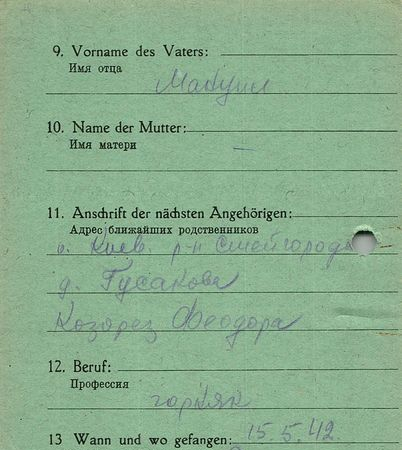 9. Vorname des Vaters:
Имя отца
10. Name der Mutter:
Имя матери
—
11. Anschrift der nächsten Angehörigen:
Адрес ближайших родственников
о. Киев. р-н
д. Гусакова
Козарез Феодора
12. Beruf:
Профессия
горняк
13 Wann und wo gefangen: 15.5.42.